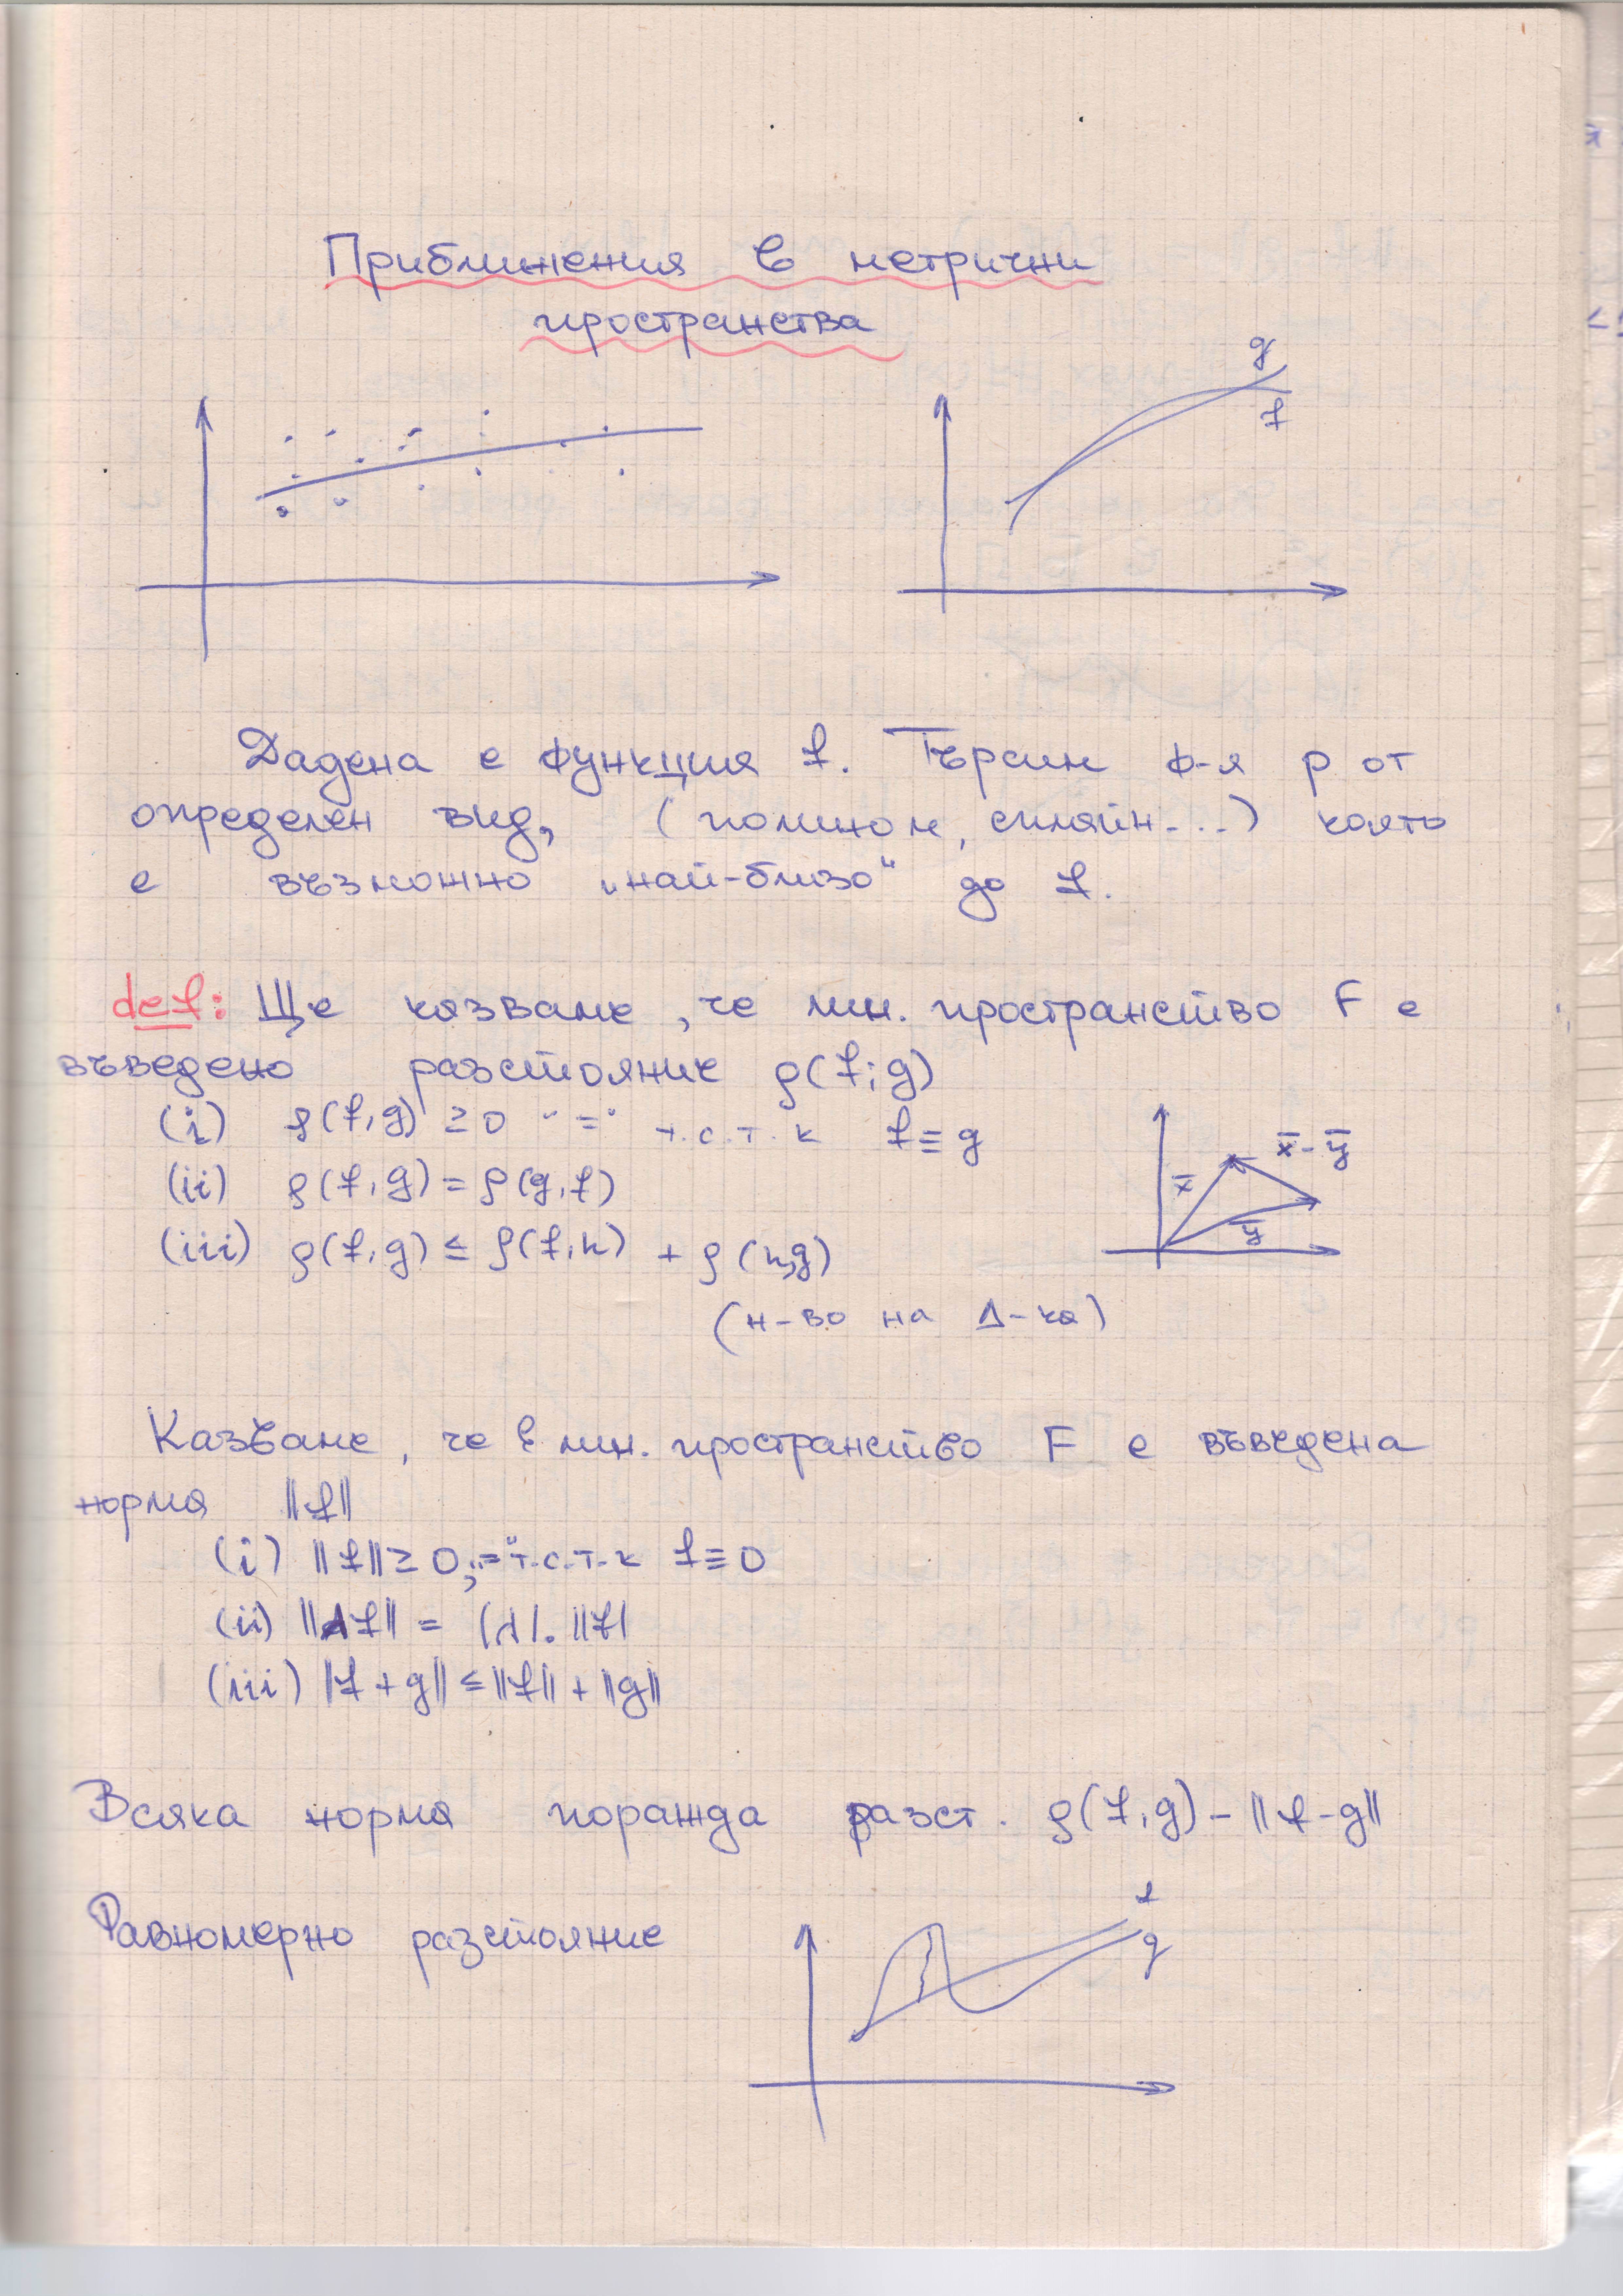 Приближения в метрични
пространства
g
f
Дадена е функция f. Търсим ф-я p от
определен вид, (полином, сплайн...) която
е възможно „най-близо“ до f.
def: Ще казваме, че лин. пространство F е
въведено разстояние ρ(f;g)
(i) ρ(f,g) ≥ 0 "=" т.с.т.к f ≡ g
(ii) ρ(f,g) = ρ(g,f)
(iii) ρ(f,g) ≤ ρ(f,h) + ρ(h,g)
(н-во на Δ-ка)
x̅
x̅ - y̅
y̅
Казваме, че в лин. пространство F е въведена
норма ||f||
(i) ||f|| ≥ 0, „=“ т.с.т.к f ≡ 0
(ii) ||λf|| = |λ|. ||f|
(iii) ||f + g|| ≤ ||f|| + ||g||
Всяка норма поражда разст. ρ(f,g) - ||f-g||
Равномерно разстояние
f
g